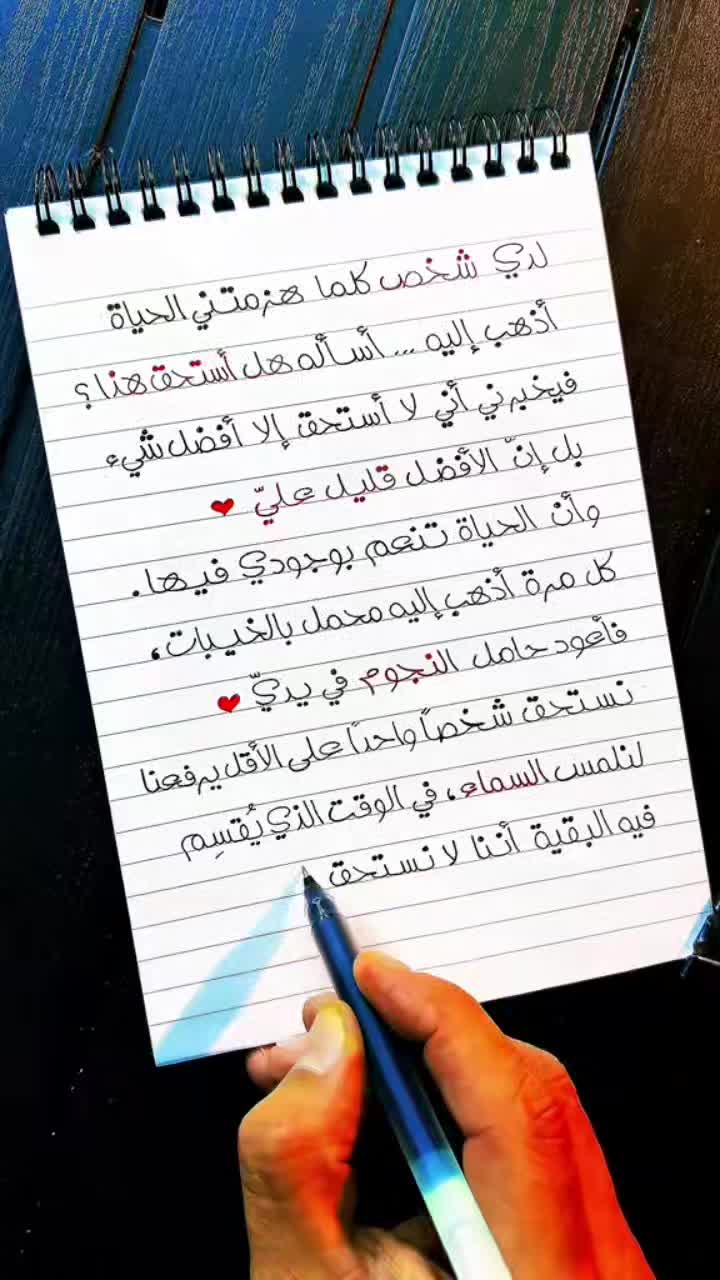 لدي شخص كلما هزمتني الحياة
أذهب إليه ... أسأله هل أستحق هذا ؟
فيخبرني أني لا أستحق إلا أفضل شيء
بل إنّ الأفضل قليل عليّ ♥
وأن الحياة تنعم بوجودي فيها .
كل مرة أذهب إليه محمل بالخيبات ،
فأعود حامل النجوم في يديّ ♥
نستحق شخصاً واحداً على الأقل يرفعنا
لنلمس السماء ، في الوقت الذي يُقسِم
فيه البقية أننا لا نستحق